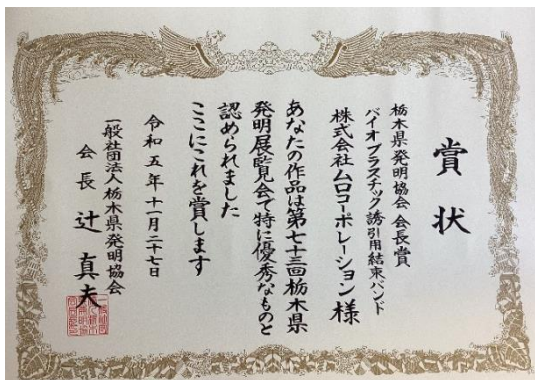 賞状
栃木県発明協会 会長賞
バイオプラスチック誘引用結束バンド
株式会社ムロコーポレーション 様
あなたの作品は第七十三回栃木県
発明展覧会で特に優秀なものと
認められました
ここにこれを賞します
令和五年十一月二十七日
一般社団法人栃木県発明協会
会長 辻 真夫